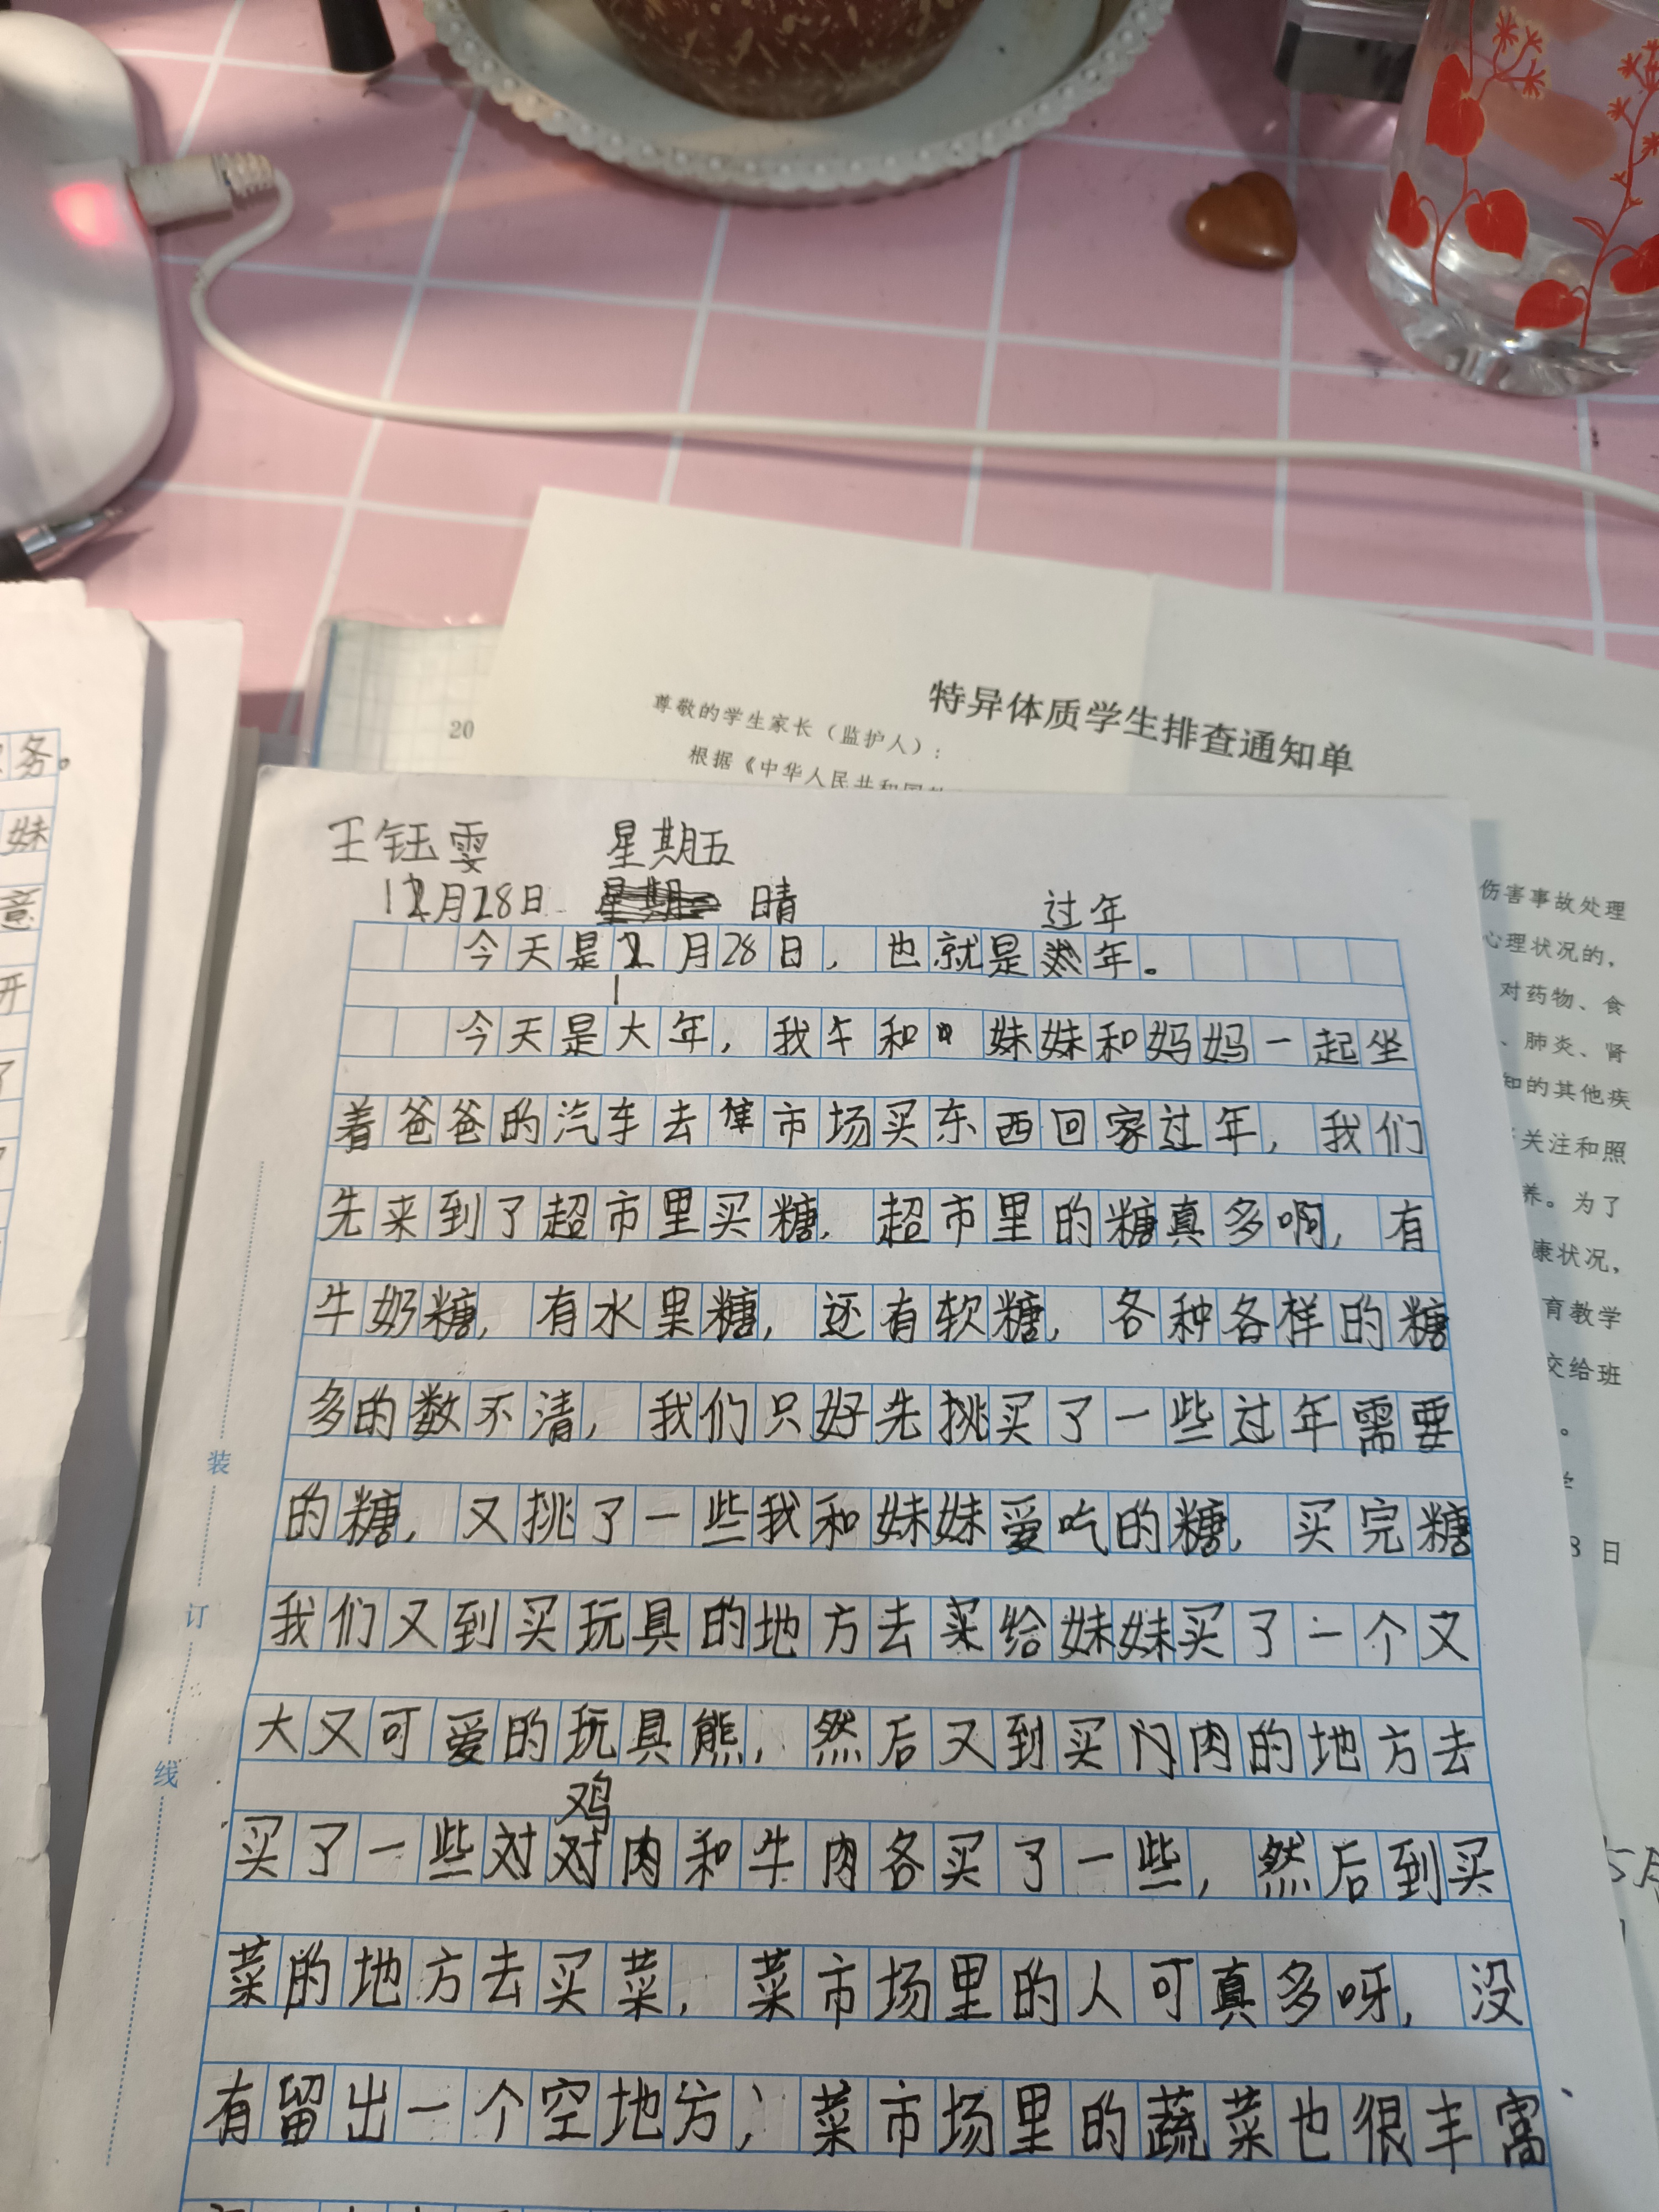 务。
妹
意
开
20
特异体质学生排查通知单
尊敬的学生家长（监护人）：
根据《中华人民共和国
伤害事故处理
心理状况的，
对药物、食
、肺炎、肾
知的其他疾
关注和照
养。为了
康状况，
育教学
交给班
。
8 日
王钰雯 星期五
12月28日 晴 过年
今天是12月28日，也就是年。
今天是大年，我和妹妹和妈妈一起坐
着爸爸的汽车去市场买东西回家过年，我们
先来到了超市里买糖，超市里的糖真多啊，有
牛奶糖，有水果糖，还有软糖，各种各样的糖
多的数不清，我们只好先挑买了一些过年需要
的糖，又挑了一些我和妹妹爱吃的糖，买完糖
我们又到买玩具的地方去买给妹妹买了一个又
大又可爱的玩具熊，然后又到买肉的地方去
鸡
买了一些对对肉和牛肉各买了一些，然后到买
菜的地方去买菜，菜市场里的人可真多呀，没
有留出一个空地方，菜市场里的蔬菜也很丰富
装
订
线